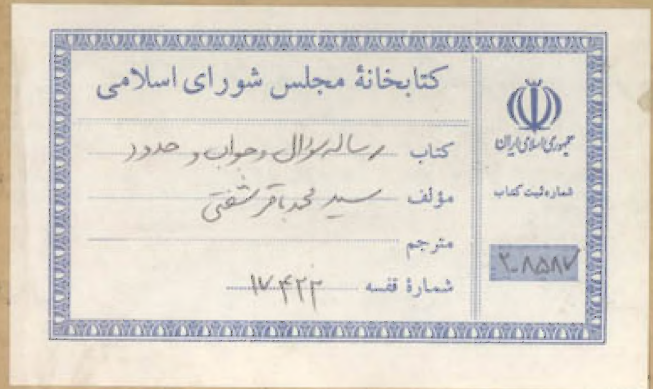 کتابخانهٔ مجلس شورای اسلامی
کتاب رساله سؤال و جواب و حدود
مؤلف سید محمد باقر شفتی
مترجم
شمارهٔ قفسه ۱۷۴۲۲
جمهوری اسلامی ایران
شماره ثبت کتاب
۲۰۸۵۸۷